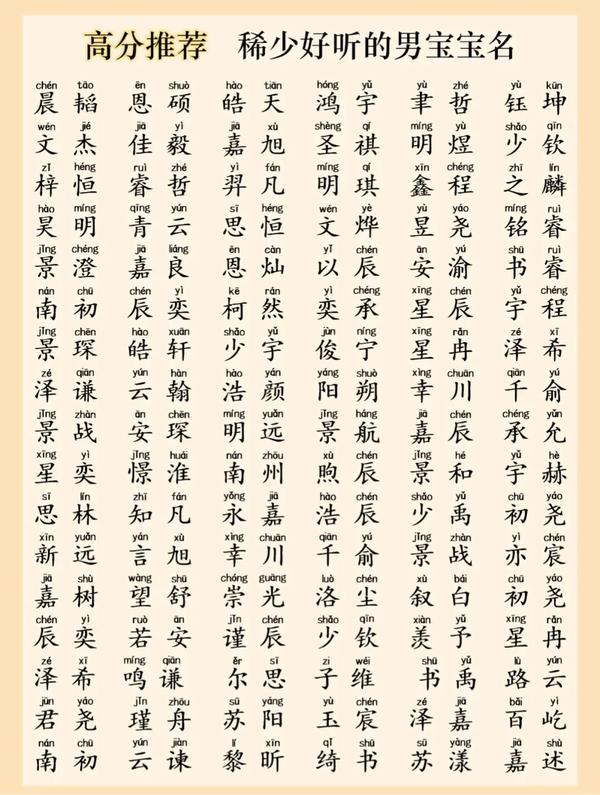 高分推荐 稀少好听的男宝宝名
chén tāo ēn shuò hào tiān hóng yǔ yù zhé yù kūn
晨韬 恩硕 皓天 鸿宇 聿哲 钰坤
wén jié jiā yì jiā xù shèng qí míng yù shǎo qīn
文杰 佳毅 嘉旭 圣祺 明煜 少钦
zǐ héng ruì zhé yì fán míng qí xīn chéng zhī lín
梓恒 睿哲 羿凡 明琪 鑫程 之麟
hào míng qīng yún sī héng wén yè yù yáo míng ruì
昊明 青云 思恒 文烨 昱尧 铭睿
jǐng chéng jiā liáng ēn càn yǐ chén ān yú shū ruì
景澄 嘉良 恩灿 以辰 安渝 书睿
nán chū chén yì kē rán yì chéng xīng chén yǔ chéng
南初 辰奕 柯然 奕承 星辰 宇程
jǐng chēn hào xuān shǎo yǔ jùn níng xīng rǎn zé xī
景琛 皓轩 少宇 俊宁 星冉 泽希
zé qiān yún hàn hào yán yáng shuò xìng chuān qiān yú
泽谦 云翰 浩颜 阳朔 幸川 千俞
jǐng zhàn ān chēn míng yuǎn jǐng háng jiā chén chéng yǔn
景战 安琛 明远 景航 嘉辰 承允
xīng yì jǐng huái nán zhōu xù chén jǐng hé yǔ hè
星奕 憬淮 南州 煦辰 景和 宇赫
sī lín zhī fán yǒng jiā hào chén shǎo yǔ chū yáo
思林 知凡 永嘉 浩辰 少禹 初尧
xīn yuǎn yán xù xìng chuān qiān yú jǐng zhàn yì chén
新远 言旭 幸川 千俞 景战 亦宸
jiā shù wàng shū chóng guāng luò chén xù bái chū yáo
嘉树 望舒 崇光 洛尘 叙白 初尧
chén yì ruò ān jǐn chén shǎo qīn xiàn yǔ xīng rǎn
辰奕 若安 谨辰 少钦 羡予 星冉
zé xī míng qiān ěr sī zi wéi shū yǔ lù yún
泽希 鸣谦 尔思 子维 书禹 路云
jūn yáo jǐn zhōu sū yáng yù chén zé jiā bǎi yì
君尧 瑾舟 苏阳 玉宸 泽嘉 百屹
nán chū yún jiàn lí xīn qǐ shū sū yàng jiā shù
南初 云谏 黎昕 绮书 苏漾 嘉述